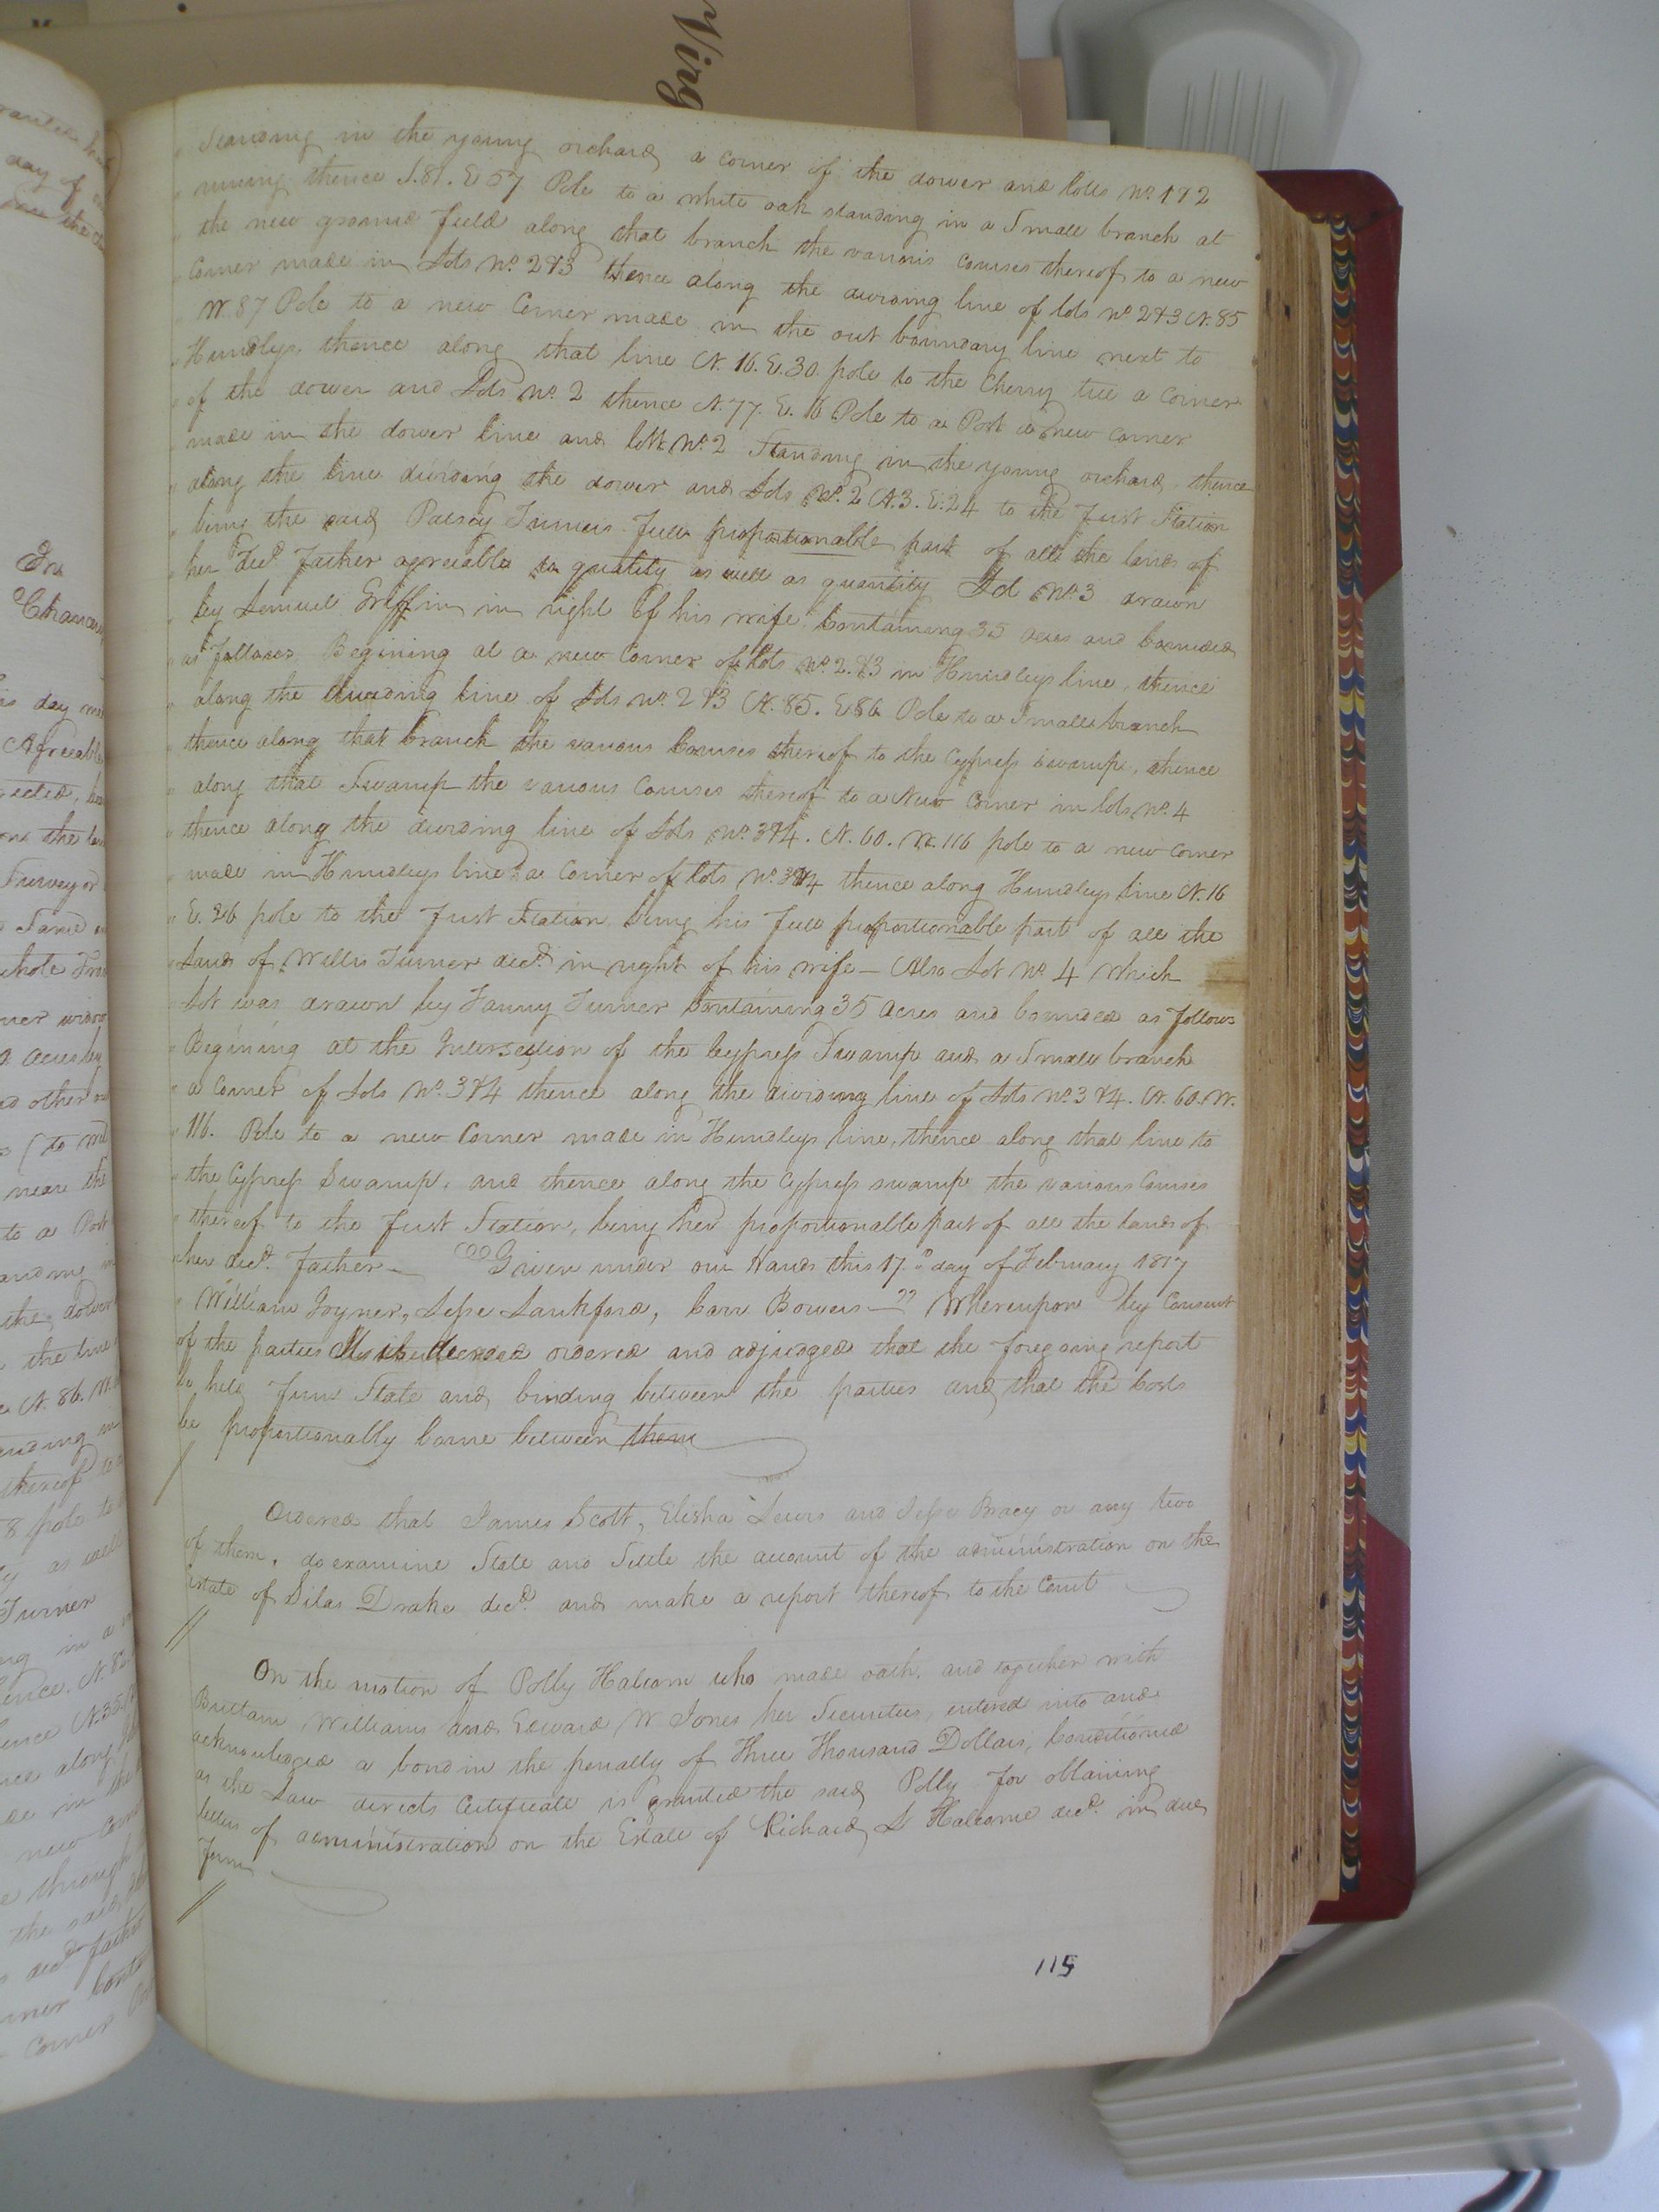 Virg
Standing in the young orchard a corner of the dower and lotts No. 1 & 2
runing thence S. 81. E 57 Pole to a white oak standing in a Small branch at
the new ground field along that branch the various courses thereof to a new
Corner made in Lots No. 2 & 3 thence along the dividing line of lots No. 2 & 3 N. 85
W. 87 Pole to a new Corner made in the out boundary line next to
Hundleys, thence along that line N. 16. E. 30. pole to the Cherry tree a Corner
of the dower and Lots No. 2 thence N. 77. E. 16 Pole to a Post a new corner
made in the dower line and lott No. 2 Standing in the young orchard, thence
along the line dividing the dower and Lots No. 2 N. 3. E. 24 to the first Station
being the said Patsey Turners full proportionable part of all the lands of
her decd. father agreeable to quality as well as quantity Lot No. 3 drawn
by Lemuel Griffin in right of his wife Containing 35 acres and bounded
as follows, Begining at a new Corner of Lots No. 2. & 3 in Hundleys line, thence
along the dividing line of Lots No. 2 & 3 N. 85. E 86 Pole to a Small branch
thence along that branch the various Courses thereof to the Cypress swamp, thence
along that Swamp the various Courses thereof to a New Corner in lots No. 4
thence along the dividing line of Lots No. 3 & 4. N. 60. W. 116 pole to a new Corner
made in Hundleys line a Corner of lots No. 3 & 4 thence along Hundleys line N. 16
E. 26 pole to the first Station being his full proportionable part of all the
Land of Willis Turner decd. in right of his wife — Also Lot No. 4 Which
Lot was drawn by Fanny Turner Containing 35 acres and bounded as follows
Begining at the Intersection of the Cypress Swamp and a Small branch
a Corner of Lots No. 3 & 4 thence along the dividing line of Lots No. 3 & 4. N. 60. W.
116. Pole to a new Corner made in Hundleys line, thence along that line to
the Cypress Swamp, and thence along the Cypress swamp the various Courses
thereof to the first Station, being her proportionable part of all the lands of
her decd. father — Given under our Hands this 17.th day of February 1817
William Joyner, Jesse Lankford, Carr Bowers —" Whereupon by Consent
of the parties It is decreed ordered and adjudged that the foregoing report
be held firm State and binding between the parties and that the Costs
be proportionally borne between them
Ordered that James Scott, Elisha Lewis and Jesse Bracy or any two
of them, do examine State and Settle the account of the administration on the
Estate of Silas Drake decd. and make a report thereof to the Court
On the motion of Polly Halcom who made oath, and together with
Brittain Williams and Edward W Jones her Securities, entered into and
acknowledged a bond in the penalty of Three Thousand Dollars, Conditioned
as the Law directs Certificate is granted the said Polly for obtaining
letters of administration on the Estate of Richard L Halcome decd. in due
form
115